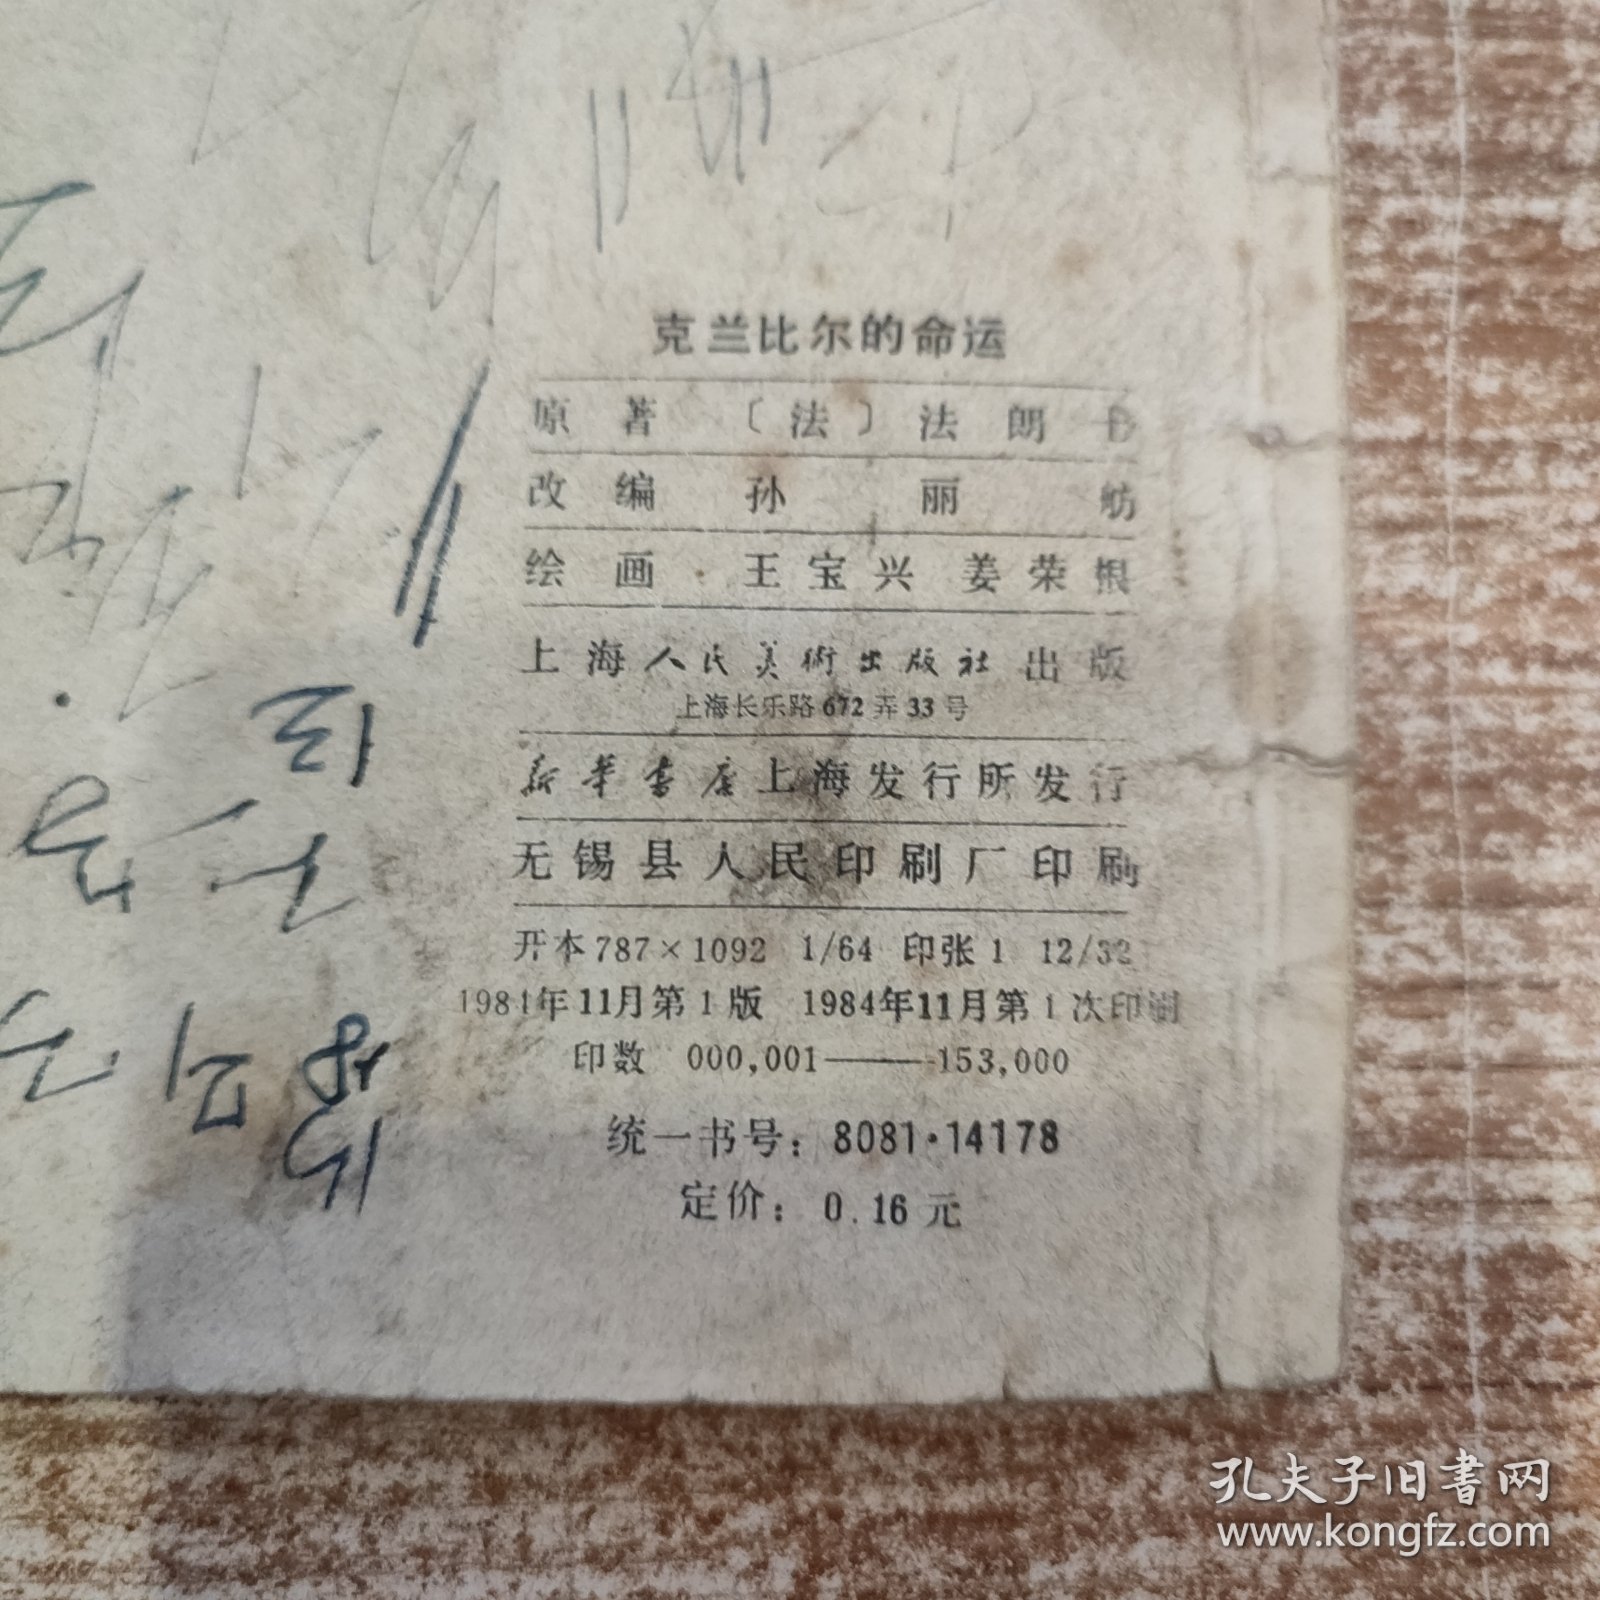 克兰比尔的命运
原著 〔法〕法朗士
改编 孙丽舫
绘画 王宝兴 姜荣根
上海人民美術出版社出版
上海长乐路672弄33号
新华书店上海发行所发行
无锡县人民印刷厂印刷
开本787×1092 1/64 印张1 12/32
1984年11月第1版 1984年11月第1次印刷
印数 000,001——153,000
统一书号：8081·14178
定价：0.16元
孔夫子旧书网
www.kongfz.com